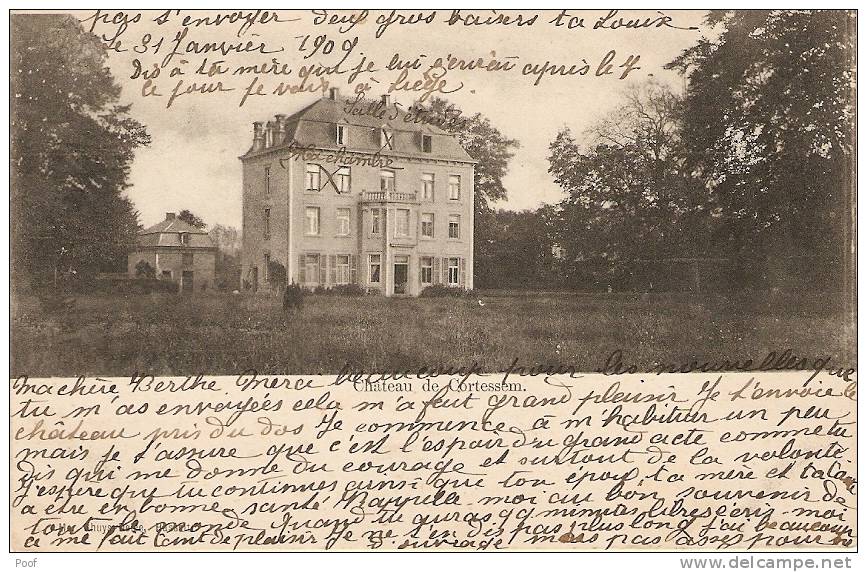 pas s'envoyer deux gros baisers ta Louise
le 31 Janvier 1909
Dis à ta mère que je lui s'enverai après le 7
le jour je vais à Liége
Salle d'étude
Ma chambre
Château de Cortessem.
Ma chère Berthe Merci beaucoup pour les nouvelles que
tu m'as envoyées cela m'a fait grand plaisir Je t'envoie le
château pris du dos Je commence à m'habituer un peu
mais je t'assure que c'est l'espoir du grand acte comme tu
dis qui me donne du courage et surtout de la volonté
J'espère que tu continues ainsi que ton époux ta mère et ta tante
a etre en bonne santé Rappelle moi au bon souvenir de
tout le monde Quand tu auras qq minutes libres ecris-moi
a me fait tant de plaisir Je ne t'en dis pas plus long j'ai beaucoup
d'ouvrage mais pas assez pour ne
Poof
DELCAMPE.NET